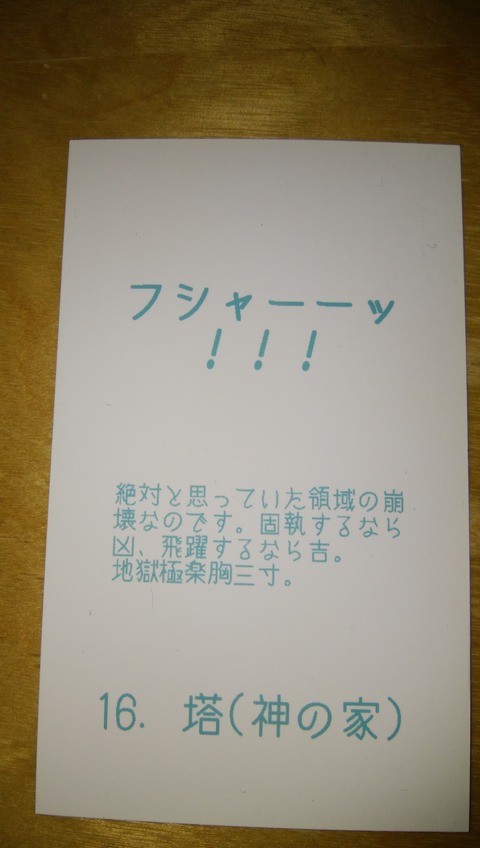 フシャーーッ
！！！
絶対と思っていた領域の崩
壊なのです。固執するなら
凶、飛躍するなら吉。
地獄極楽胸三寸。
16. 塔(神の家)